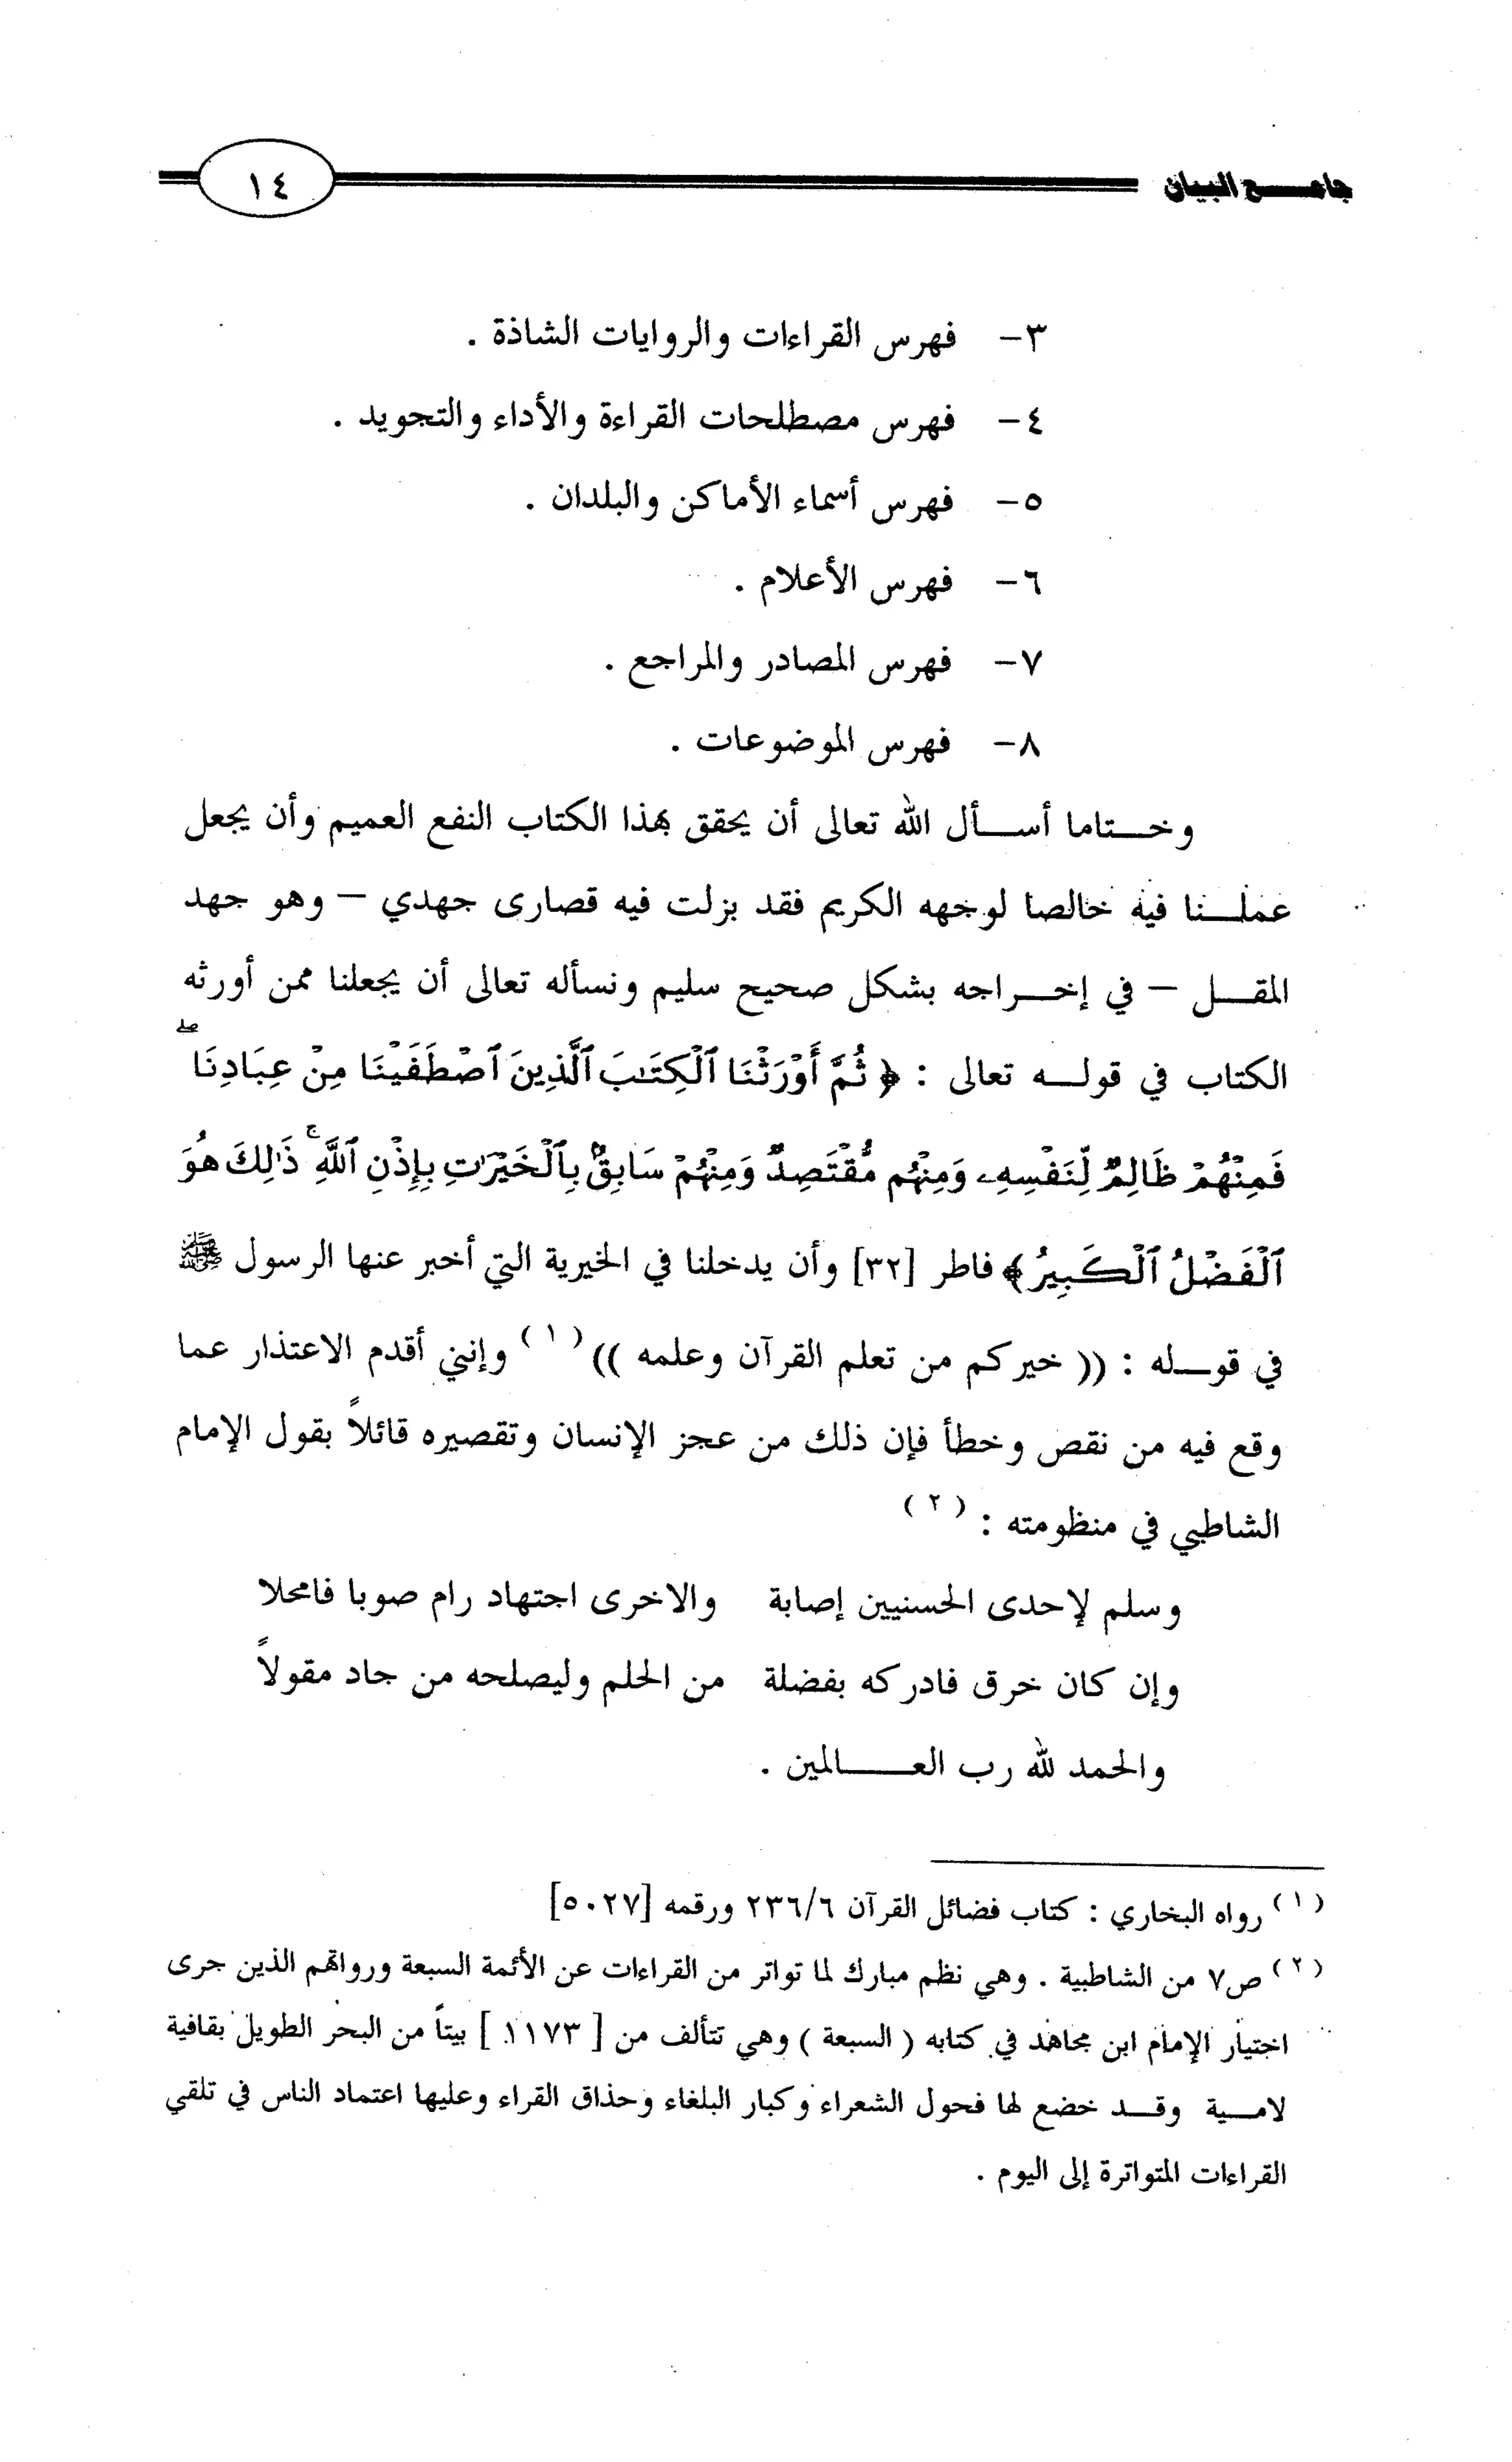 جامع البيان ١٤
٣- فهرس القراءات والروايات الشاذة .
٤- فهرس مصطلحات القراءة والأداء والتجويد .
٥- فهرس أسماء الأماكن والبلدان .
٦- فهرس الأعلام .
٧- فهرس المصادر والمراجع .
٨- فهرس الموضوعات .
وختاما أسأل الله تعالى أن يحقق بهذا الكتاب النفع العميم وأن يجعل
عملنا فيه خالصا لوجهه الكريم فقد بزلت فيه قصارى جهدي – وهو جهد
المقل – في إخراجه بشكل صحيح سليم ونسأله تعالى أن يجعلنا ممن أورثه
الكتاب في قوله تعالى : ﴿ ثُمَّ أَوْرَثْنَا ٱلْكِتَٰبَ ٱلَّذِينَ ٱصْطَفَيْنَا مِنْ عِبَادِنَا ۖ
فَمِنْهُمْ ظَالِمٌ لِّنَفْسِهِۦ وَمِنْهُم مُّقْتَصِدٌ وَمِنْهُمْ سَابِقٌۢ بِٱلْخَيْرَٰتِ بِإِذْنِ ٱللَّهِ ۚ ذَٰلِكَ هُوَ
ٱلْفَضْلُ ٱلْكَبِيرُ ﴾ فاطر [٣٢] وأن يدخلنا في الخيرية التي أخبر عنها الرسول ﷺ
في قوله : (( خيركم من تعلم القرآن وعلمه ))(١) وإنني أقدم الاعتذار عما
وقع فيه من نقص وخطأ فإن ذلك من عجز الإنسان وتقصيره قائلاً بقول الإمام
الشاطبي في منظومته : (٢)
وسلم لإحدى الحسنيين إصابة والاخرى اجتهاد رام صوبا فامحلا
وإن كان خرق فادركه بفضلة من الحلم وليصلحه من جاد مقولاً
والحمد لله رب العالمين .
(١) رواه البخاري : كتاب فضائل القرآن ٢٣٦/٦ ورقمه [٥٠٢٧]
(٢) ص٧ من الشاطبية . وهي نظم مبارك لما تواتر من القراءات عن الأئمة السبعة ورواتهم الذين جرى
اختيار الإمام ابن مجاهد في كتابه ( السبعة ) وهي تتألف من [ ١١٧٣ ] بيتاً من البحر الطويل بقافية
لامية وقد خضع لها فحول الشعراء وكبار البلغاء وحذاق القراء وعليها اعتماد الناس في تلقي
القراءات المتواترة إلى اليوم .